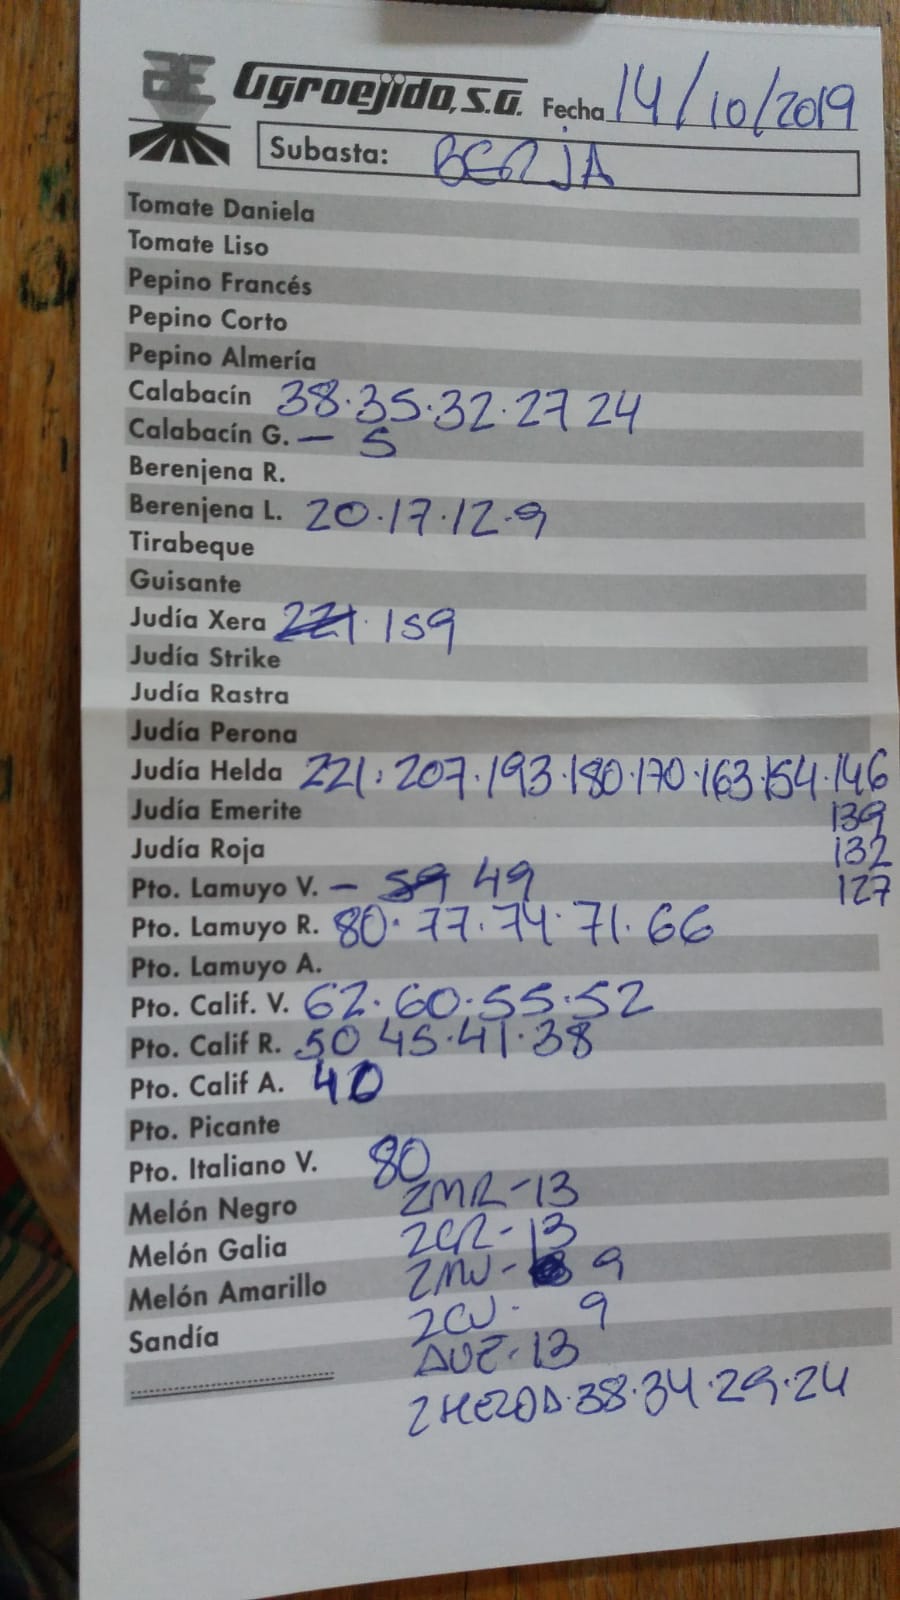 AE Agroejido, S.A. Fecha 14/10/2019
Subasta: BERJA
Tomate Daniela
Tomate Liso
Pepino Francés
Pepino Corto
Pepino Almería
Calabacín 38.35.32.27 24
Calabacín G. — 5
Berenjena R.
Berenjena L. 20.17.12.9
Tirabeque
Guisante
Judía Xera 221. 159
Judía Strike
Judía Rastra
Judía Perona
Judía Helda 221.207.193.180.170.163.154.146
Judía Emerite 139
Judía Roja 132
Pto. Lamuyo V. — 59 49 127
Pto. Lamuyo R. 80.77.74.71.66
Pto. Lamuyo A.
Pto. Calif. V. 62.60.55.52
Pto. Calif R. 50 45.41.38
Pto. Calif A. 40
Pto. Picante
Pto. Italiano V. 80
Melón Negro 2MR-13
Melón Galia 2CR-13
Melón Amarillo 2MV- 9
Sandía 2CV- 9
13
38.34.29.24